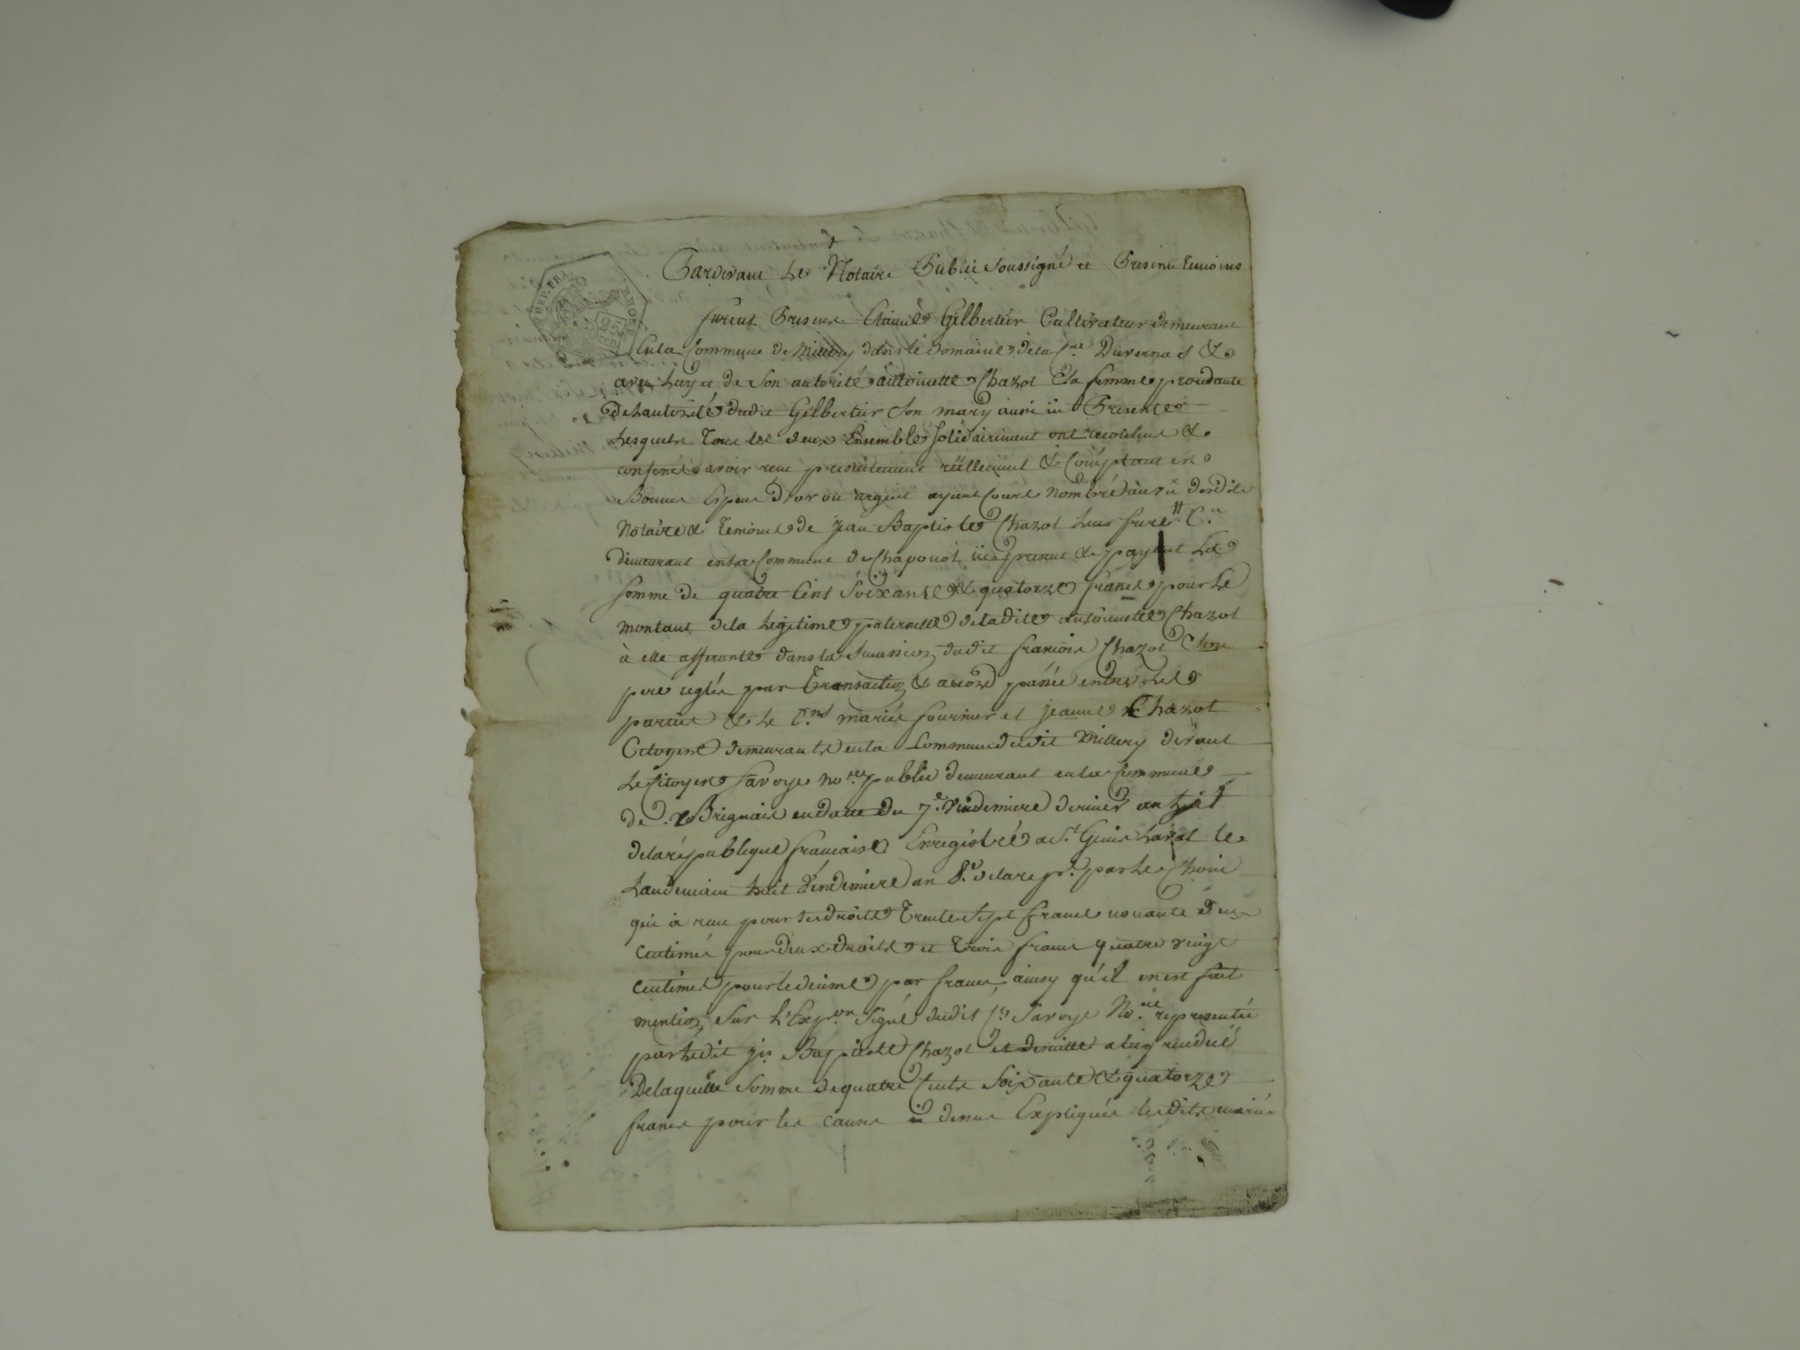 REP. FRA. RHONE
Pardevant Le Notaire Public Soussigné et Presents temoins
furent Presents Gilbertier Cultivateur demeurant
en la Commune de Millery dans le domaine de la C.ne Duvernas &
avec Luy et de Son autorité antoinette Chazot Sa femme procedante
de Lautorité dudit Gilbertier Son mary aussi ici Present
Lesquels tous les deux Ensemble Solidairement ont reconnus &
confessés avoir reçu presentement réellement & Comptant en
Bonnes Especes d'or ou argent ayant Cours Nombré à vu desdits
Notaire & temoins de jean Baptiste Chazot Leur frere C.n
demeurant en la Commune de Chaponot ici present & payant La
Somme de quatre Cent Soixante & quatorze francs pour Le
montant de la Légitime paternelle de ladite antoinette Chazot
à elle afferante dans la Succession dudit francois Chazot Son
pere reglée par transaction & accord passée entre Les
parties & Le C.ns mariés fournier et jeanne Chazot
Citoyens demeurants en la Commune dudit Millery devant
Le Citoyen Savoye no.re public demeurant en la Commune
de Brignais en datte du 7.e Vendemiere dernier an
de la république francaise Enregistré a S.t Genis Laval le
Landemain huit Vendemiere an 8.e de la rep. par Le Choin
qui à reçu pour les droits trente sept francs nonante deux
Centimes pour deux droits et trois francs quatre vingt
Centimes pour le decime par franc, ainsy qu'il en est fait
mention Sur L'Exp.on Signé dudit C.n Savoye No.re representée
par ledit jn Baptiste Chazot et densuitte a luy rendue
De laquelle Somme de quatre Cents Soixante & quatorze
francs pour les causes ci dessus Expliquées lesdits mariés